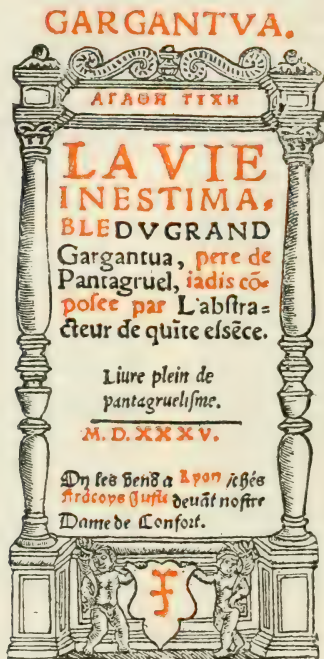 GARGANTVA.
ΑΓΑΘΗ ΤΥΧΗ
LA VIE
INESTIMA-
BLE DV GRAND
Gargantua, pere de
Pantagruel, iadis cõ-
posee par L'abstra=
cteur de quĩte essẽce.
Liure plein de
pantagruelisme.
M. D. XXXV.
On les vend a Lyon chés
Frãcoys Juste deuãt nostre
Dame de Confort.
F